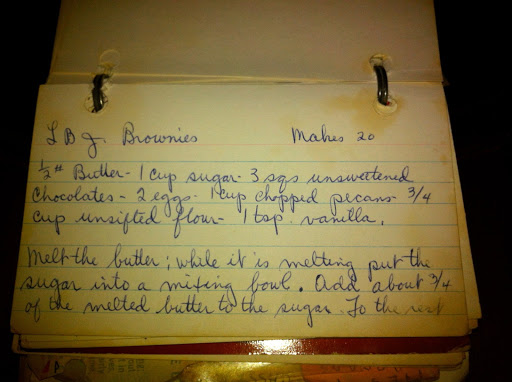 LBJ. Brownies Makes 20
1/2 # Butter - 1 cup sugar - 3 sqs unsweetened
Chocolates - 2 eggs - 1 cup chopped pecans - 3/4
cup unsifted flour - 1 tsp. vanilla.
Melt the butter; while it is melting put the
sugar into a mixing bowl. Add about 3/4
of the melted butter to the sugar. To the rest